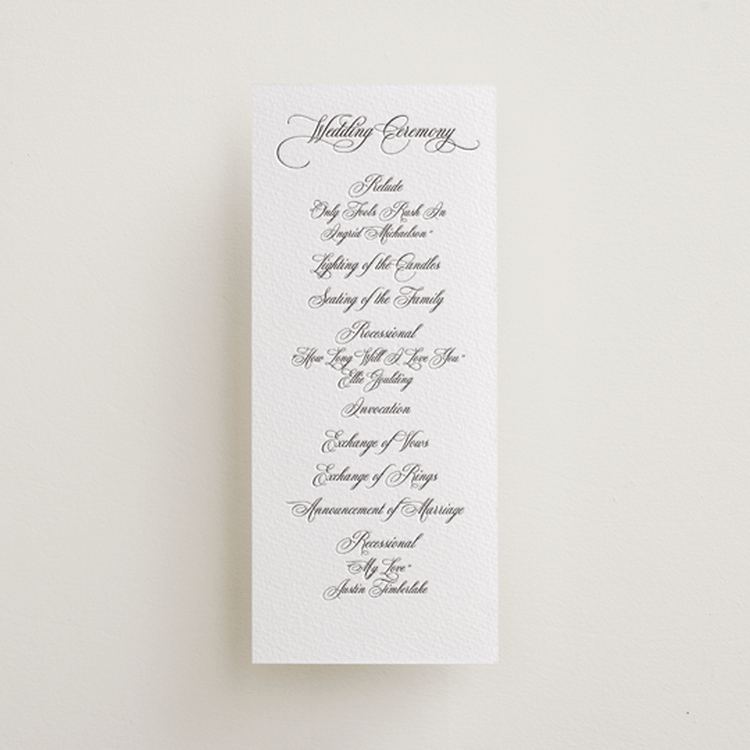 Wedding Ceremony
Prelude
Only Fools Rush In
Ingrid Michaelson"
Lighting of the Candles
Seating of the Family
Processional
"How Long Will I Love You"
Ellie Goulding
Invocation
Exchange of Vows
Exchange of Rings
Announcement of Marriage
Recessional
"My Love"
Justin Timberlake